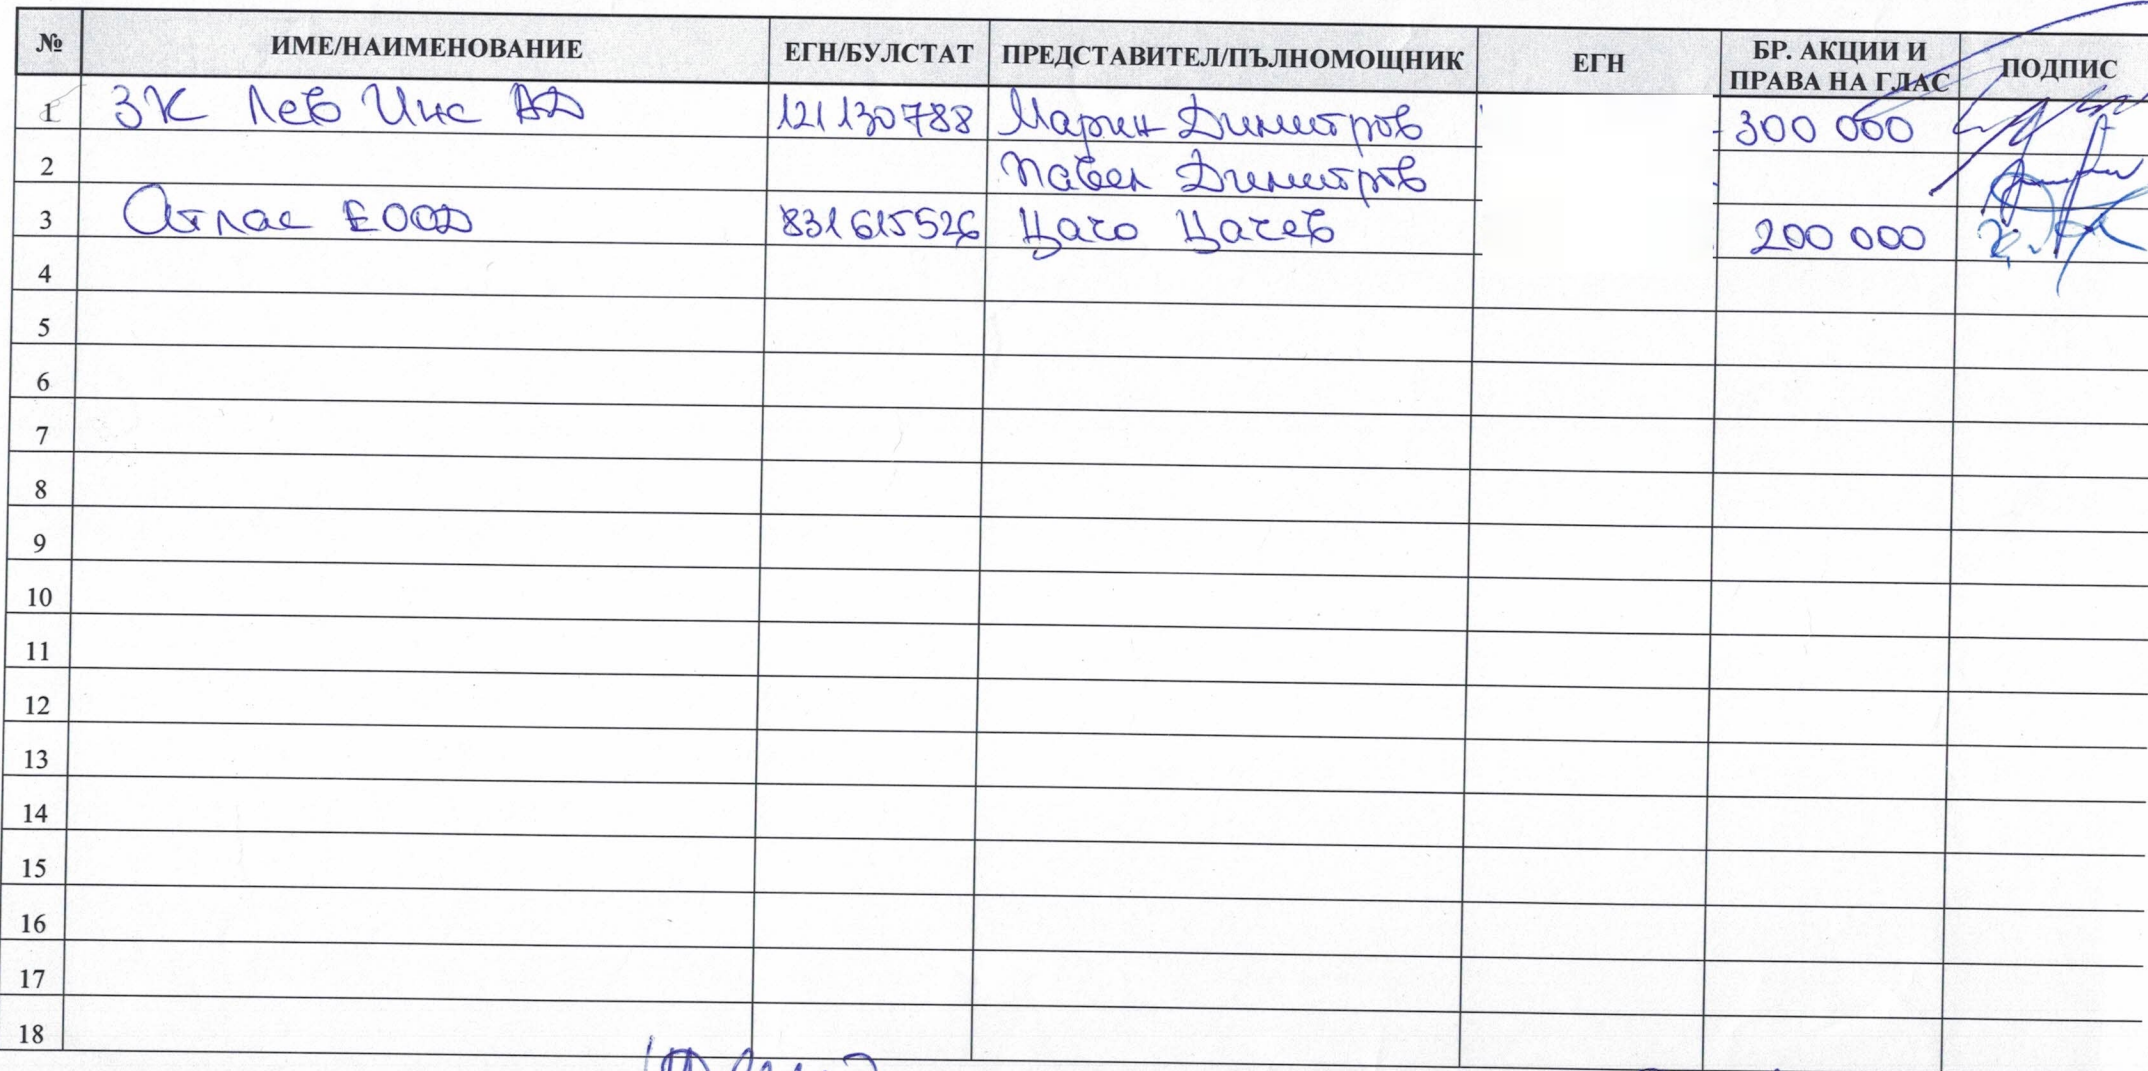 № ИМЕ/НАИМЕНОВАНИЕ ЕГН/БУЛСТАТ ПРЕДСТАВИТЕЛ/ПЪЛНОМОЩНИК ЕГН БР. АКЦИИ И ПРАВА НА ГЛАС ПОДПИС
1 ЗК Лев Инс АД 121130788 Марин Димитров 300 000
2 Павел Димитров
3 Атлас ЕООД 831615526 Цачо Цачев 200 000
4
5
6
7
8
9
10
11
12
13
14
15
16
17
18